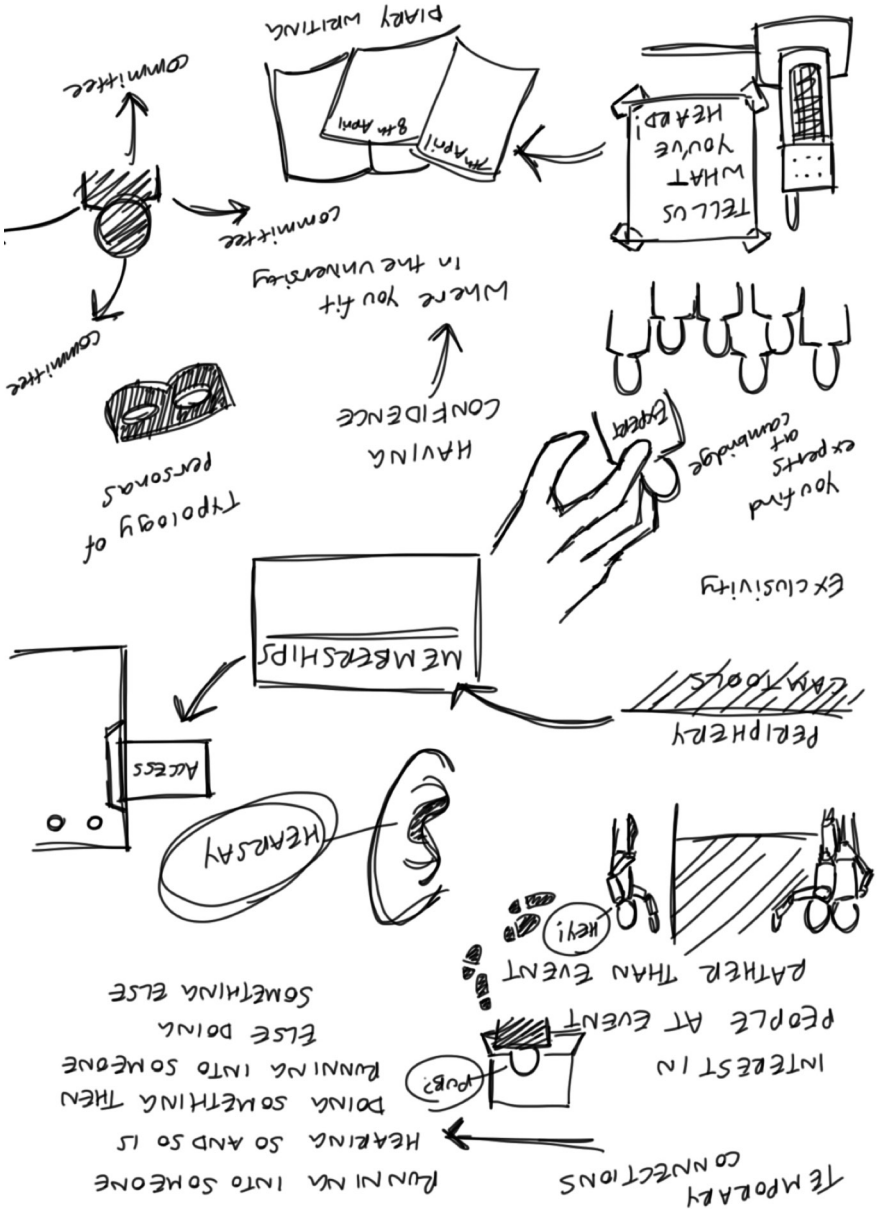 TEMPORARY
CONNECTIONS
RUNNING INTO SOMEONE
HEARING SO AND SO IS
DOING SOMETHING THEN
RUNNING INTO SOMEONE
ELSE DOING
SOMETHING ELSE
PUB?
INTEREST IN
PEOPLE AT EVENT
RATHER THAN EVENT
HEY!
HEARSAY
ACCESS
PERIPHERY
CAMTOOLS
MEMBERSHIPS
Exclusivity
you find
experts
at
cambridge
EXPERT
HAVING
CONFIDENCE
Where you fit
in the university
Typology of
personas
committee
committee
committee
TELL US
WHAT
YOU'VE
HEARD!
7th April
8th April
DIARY WRITING